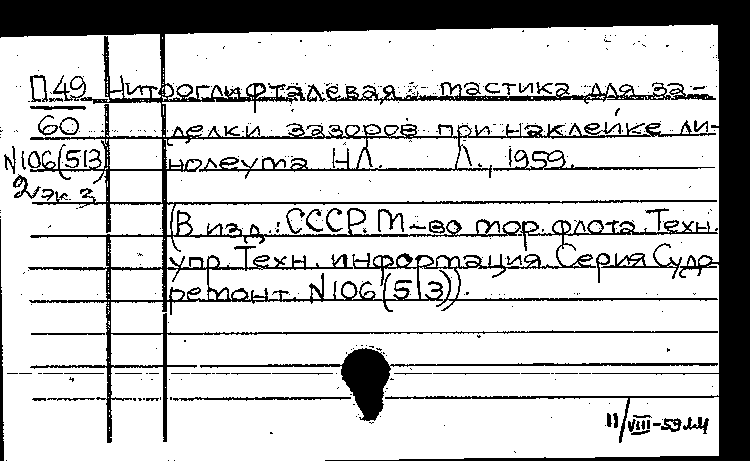 П49 Нитроглифталевая мастика для за-
60 делки зазоров при наклейке ли-
N106(513) нолеума НЛ. Л., 1959.
2 экз
(В изд.: СССР. М-во мор. флота. Техн.
упр. Техн. информация. Серия Судо
ремонт. N106(513)).
11/VIII-59